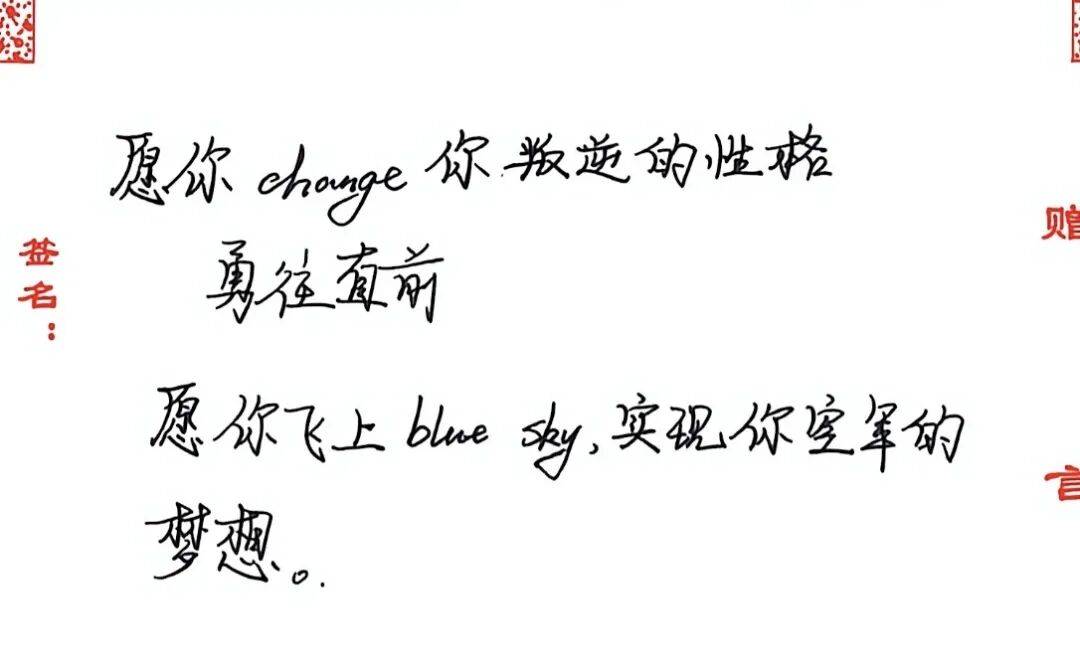 愿你 change 你叛逆的性格
勇往直前
愿你飞上 blue sky, 实现你空军的
梦想。
签名：
赠
言